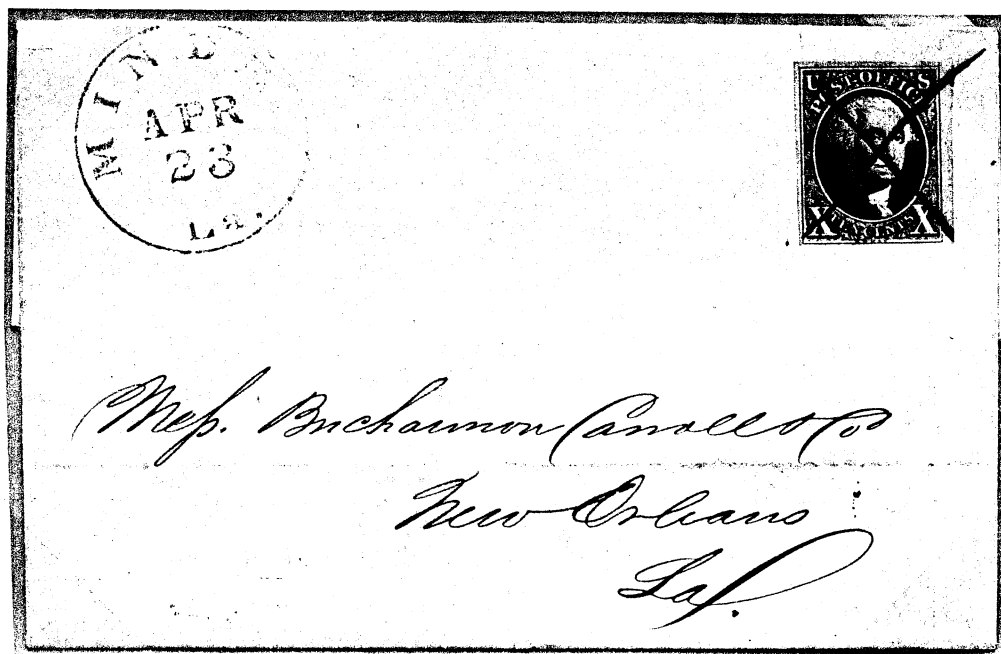 MIND
APR
23
La.
U S
POST OFFICE
X TEN CENTS X
Mess. Buchannon Carroll & Co
New Orleans
La.